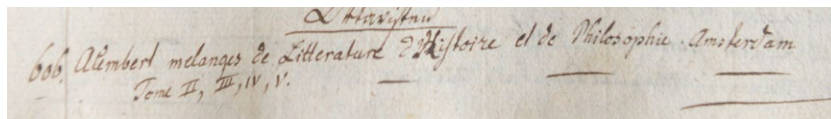 Octavisten
606. Alembert melanges de Litterature d'Histoire et de Philosophie. Amsterdam
Tome II, III, IV, V.